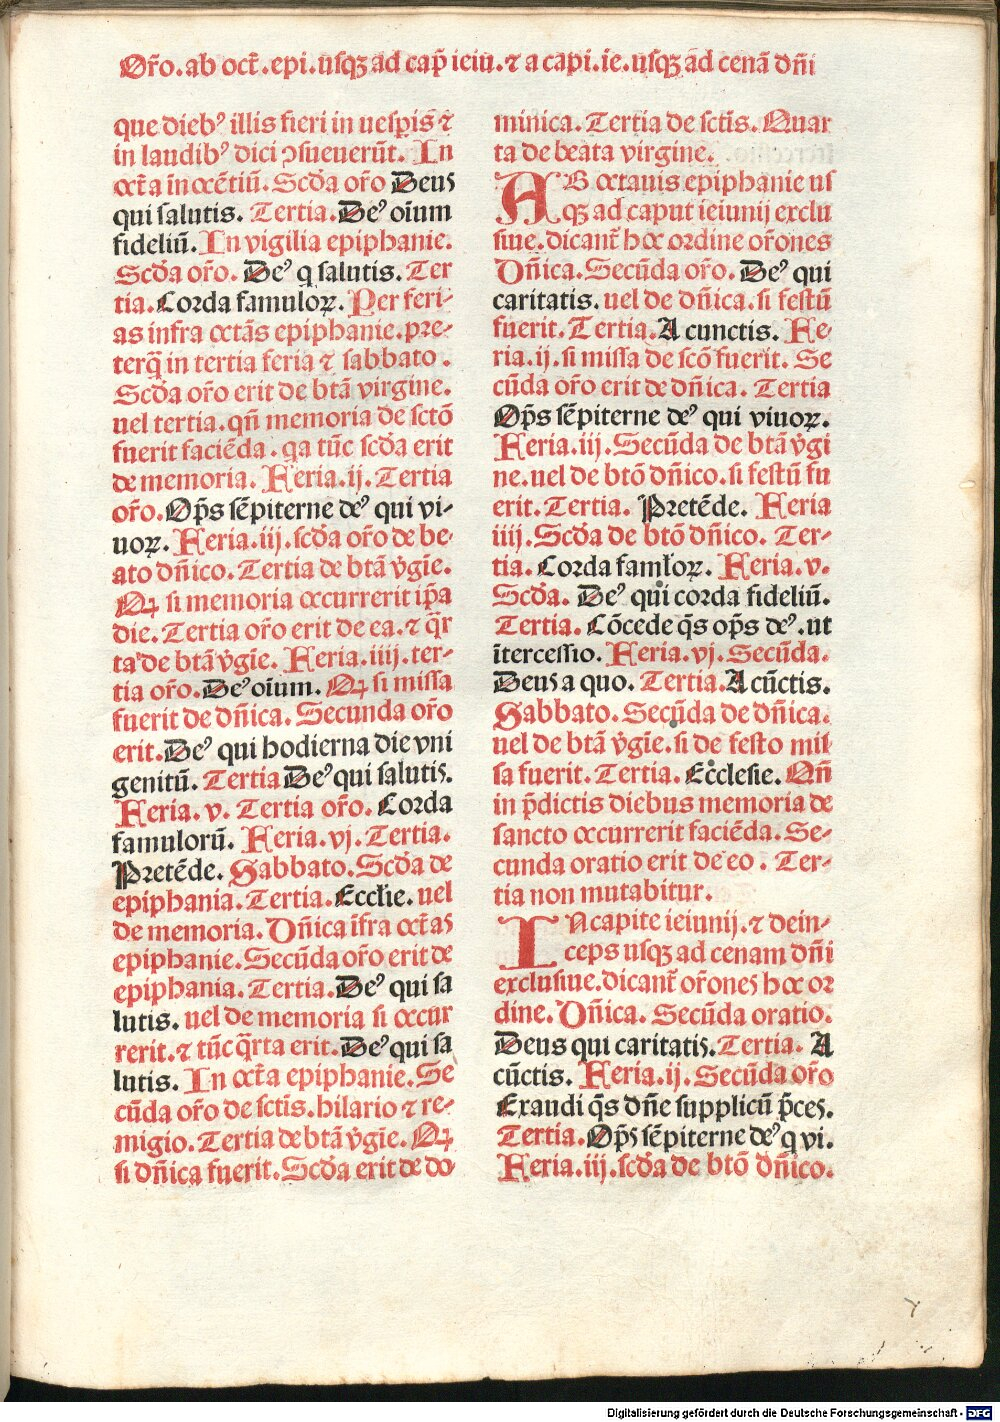 Or̄o. ab oct̄. epi. usqꝫ ad cap̄ ieiu. ⁊ a capi. ie. usqꝫ ad cenā dn̄i
que dieb⁹ illis fieri in uesp̱is ⁊
in laudib⁹ dici ↄsueuerūt. In
oct̄a inocētiū. Scd̄a or̄o Deus
qui salutis. Tertia. De⁹ oīum
fideliū. In vigilia epiphanie.
Scd̄a or̄o. De⁹ q̄ salutis. Ter
tia. Corda famuloꝝ. Per feri-
as infra octās epiphanie. pre-
terq̄ in tertia feria ⁊ sabbato.
Scd̄a or̄o erit de btā virgine.
uel tertia. qn̄ memoria de sctō
fuerit faciēda. qa tūc scd̄a erit
de memoria. Feria. ij. Tertia
or̄o. Op̄s sēpiterne de⁹ qui vi-
uoꝝ. Feria. iij. scd̄a or̄o de be-
ato dn̄ico. Tertia de btā v̄gīe.
Qꝫ si memoria occurrerit ip̄a
die. Tertia or̄o erit de ea. ⁊ q̄r
ta de btā v̄gīe. Feria. iiij. ter-
tia or̄o. De⁹ oīum. Qꝫ si missa
fuerit de dn̄ica. Secunda or̄o
erit. De⁹ qui hodierna die vni
genitū. Tertia De⁹ qui salutis.
Feria. v. Tertia or̄o. Corda
famulorū. Feria. vj. Tertia.
Pretēde. Sabbato. Scd̄a de
epiphania. Tertia. Eccl̄ie. uel
de memoria. Dn̄ica īfra oct̄as
epiphanie. Secūda or̄o erit de
epiphania. Tertia. De⁹ qui sa
lutis. uel de memoria si occur
rerit. ⁊ tūc q̄rta erit. De⁹ qui sa
lutis. In oct̄a epiphanie. Se
cūda or̄o de sctīs. hilario ⁊ re-
migio. Tertia de btā v̄gīe. Qꝫ
si dn̄ica fuerit. Scd̄a erit de do
minica. Tertia de sctīs. Quar
ta de beata virgine.
AB octauis epiphanie us
qꝫ ad caput ieiunij exclu
siue. dicant̄ hoc ordine or̄ones
Dn̄ica. Secūda or̄o. De⁹ qui
caritatis. uel de dn̄ica. si festū
fuerit. Tertia. A cunctis. Fe-
ria. ij. si missa de scō fuerit. Se
cūda or̄o erit de dn̄ica. Tertia
Op̄s sēpiterne de⁹ qui viuoꝝ.
Feria. iij. Secūda de btā v̄gi
ne. uel de btō dn̄ico. si festū fu
erit. Tertia. Pretēde. Feria
iiij. Scd̄a de btō dn̄ico. Ter-
tia. Corda faml̄oꝝ. Feria. v.
Scd̄a. De⁹ qui corda fideliū.
Tertia. Cōcede q̄s op̄s de⁹. ut
ītercessio. Feria. vj. Secūda.
Deus a quo. Tertia. A cūctis.
Sabbato. Secūda de dn̄ica.
uel de btā v̄gīe. si de festo mis
sa fuerit. Tertia. Ecclesie. Qn̄
in p̄dictis diebus memoria de
sancto occurrerit faciēda. Se-
cunda oratio erit de eo. Ter-
tia non mutabitur.
IN capite ieiunij. ⁊ dein-
ceps usqꝫ ad cenam dn̄i
exclusiue. dicant̄ or̄ones hoc or
dine. Dn̄ica. Secūda oratio.
Deus qui caritatis. Tertia. A
cūctis. Feria. ij. Secūda or̄o
Exaudi q̄s dn̄e supplicū p̄ces.
Tertia. Op̄s sēpiterne de⁹ q̄ vi.
Feria. iij. scd̄a de btō dn̄ico.
Digitalisierung gefördert durch die Deutsche Forschungsgemeinschaft - DFG